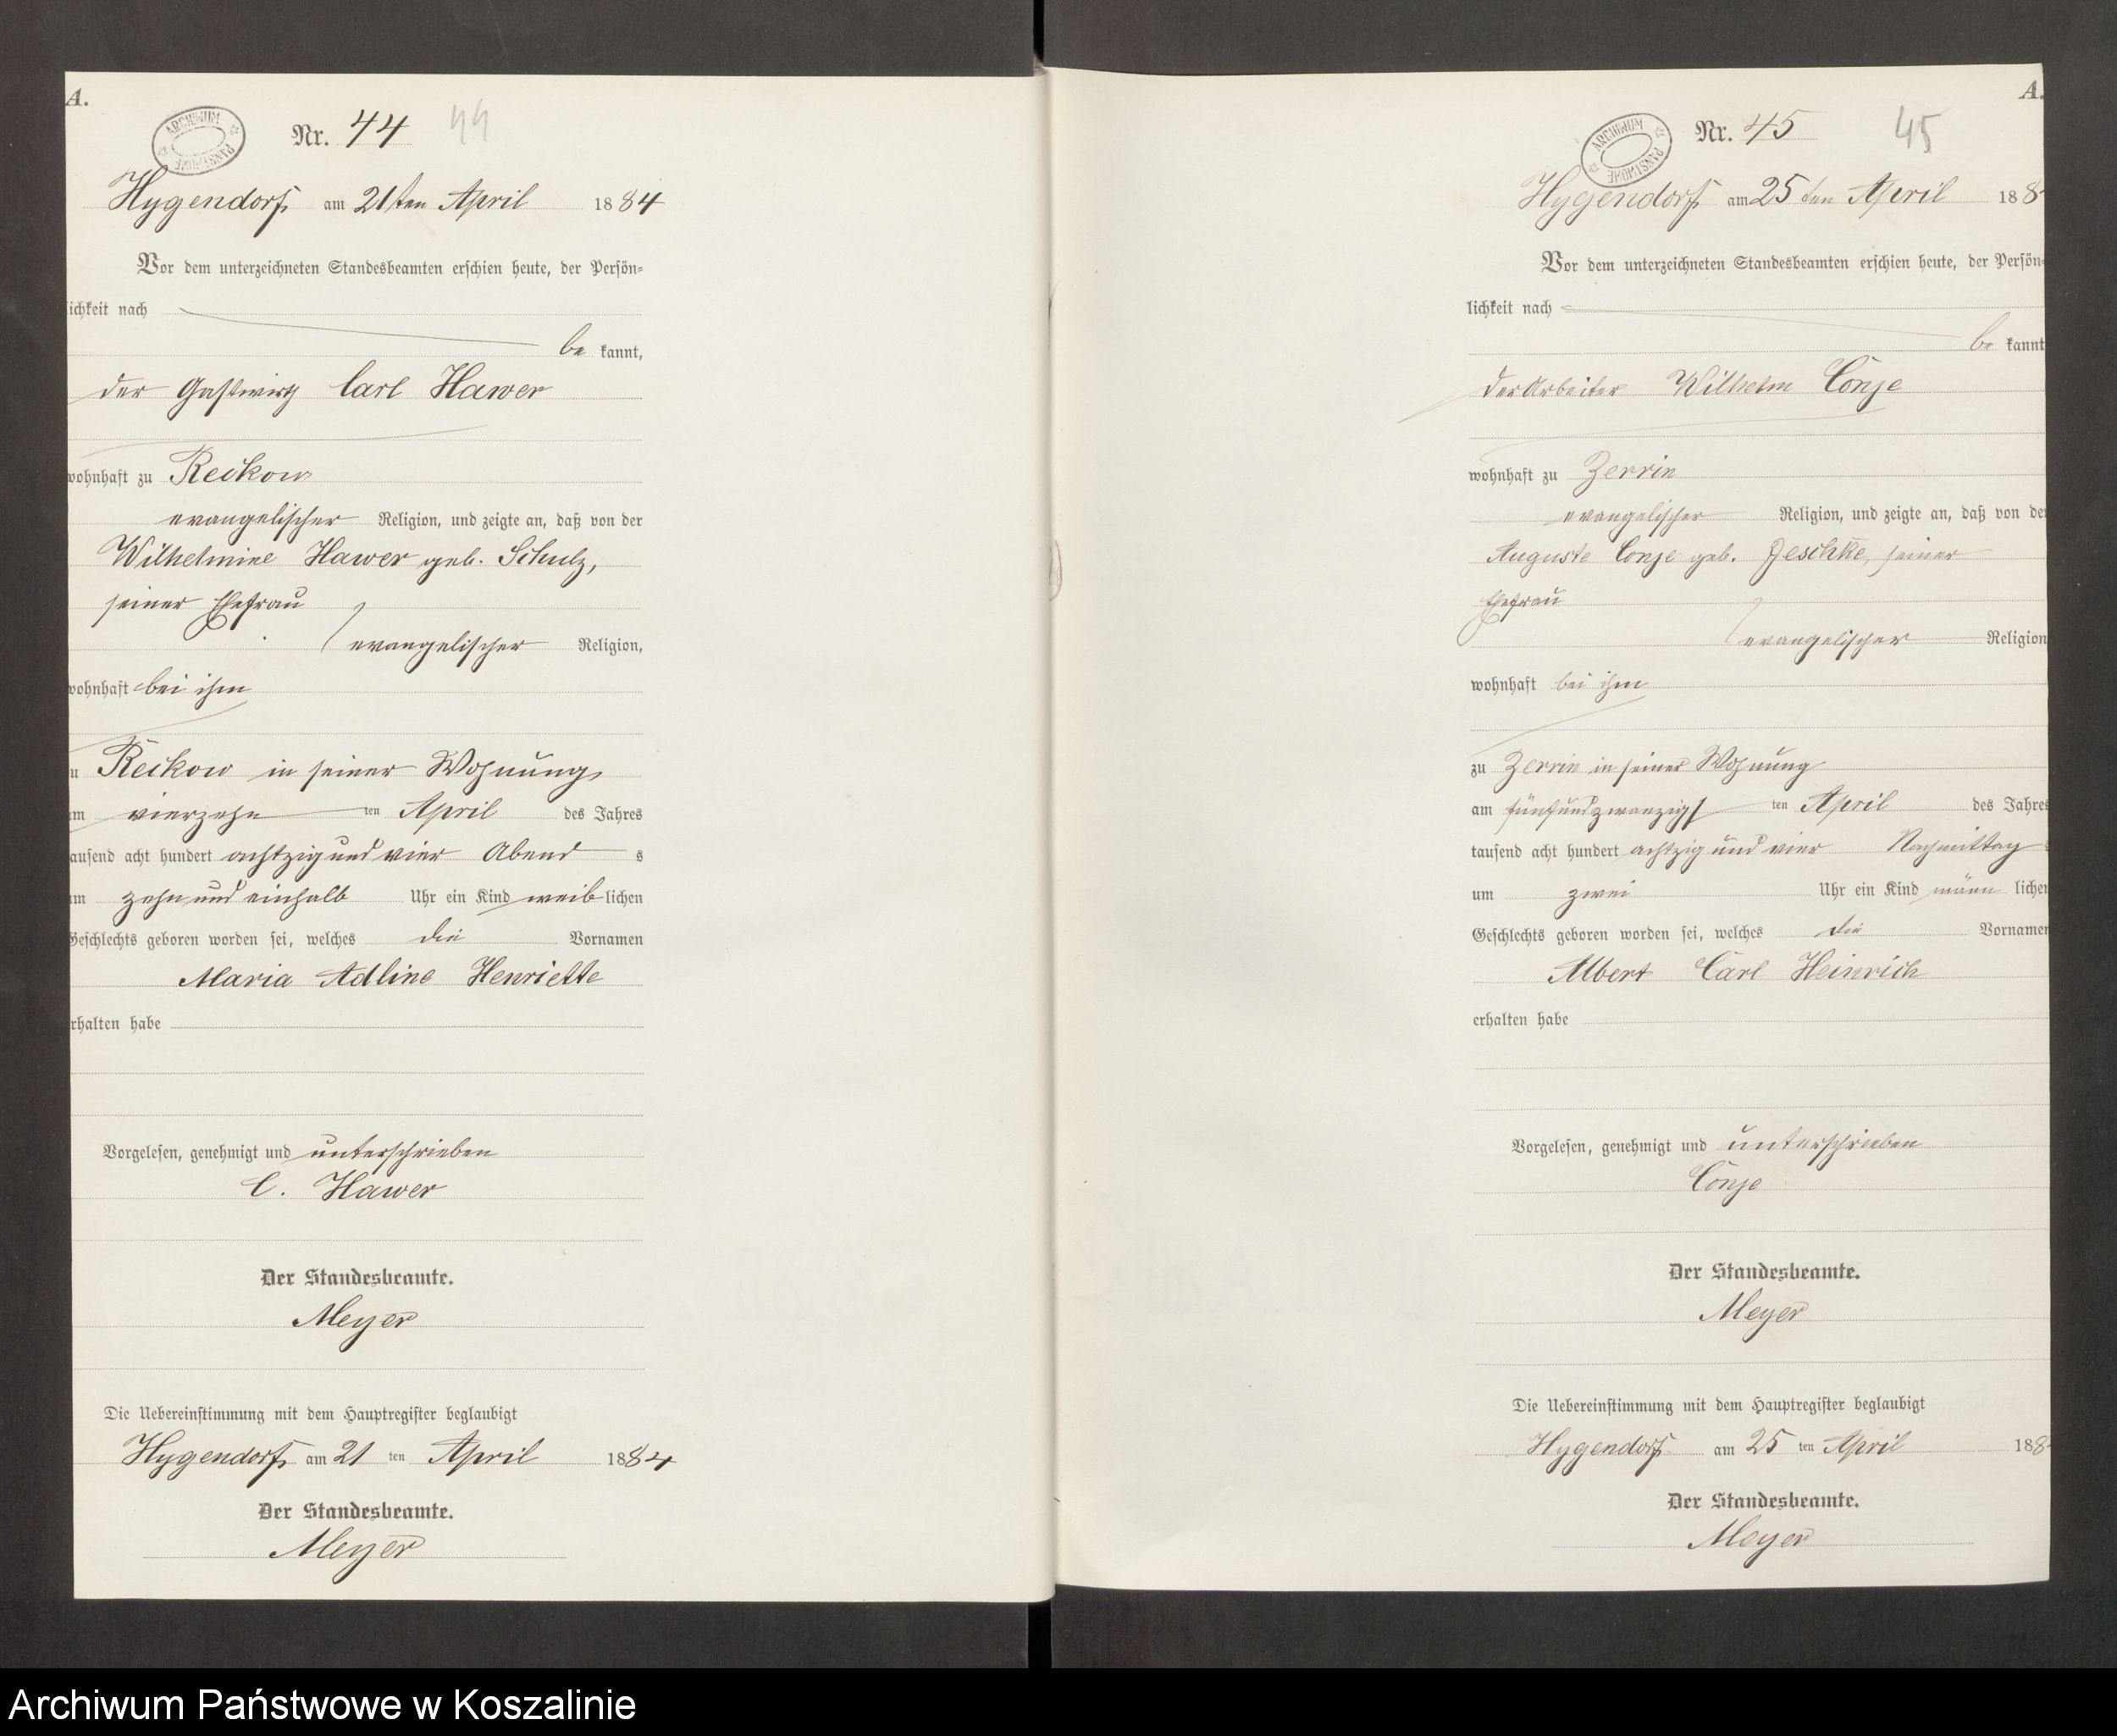 A.
ARCHIWUM PAŃSTWOWE
Nr. 44 44
Hygendorf am 21ten April 1884
Vor dem unterzeichneten Standesbeamten erschien heute, der Persön-
lichkeit nach
be kannt,
der Gastwirth Carl Hawer
wohnhaft zu Reckow
evangelischer Religion, und zeigte an, daß von der
Wilhelmine Hawer geb. Schulz,
seiner Ehefrau
evangelischer Religion,
wohnhaft bei ihm
zu Reckow in seiner Wohnung
am vierzehn ten April des Jahres
tausend acht hundert achtzig und vier Abend s
um zehn und einhalb Uhr ein Kind weib lichen
Geschlechts geboren worden sei, welches die Vornamen
Maria Adline Henriette
erhalten habe
Vorgelesen, genehmigt und unterschrieben
C. Hawer
Der Standesbeamte.
Meyer
Die Uebereinstimmung mit dem Hauptregister beglaubigt
Hygendorf am 21 ten April 1884
Der Standesbeamte.
Meyer
A.
ARCHIWUM PAŃSTWOWE
Nr. 45 45
Hygendorf am 25ten April 188
Vor dem unterzeichneten Standesbeamten erschien heute, der Persön-
lichkeit nach
be kannt
der Arbeiter Wilhelm Conje
wohnhaft zu Zerrin
evangelischer Religion, und zeigte an, daß von der
Auguste Conje geb. Jeschke, seiner
Ehefrau
evangelischer Religion
wohnhaft bei ihm
zu Zerrin in seiner Wohnung
am fünfundzwanzigs ten April des Jahres
tausend acht hundert achtzig und vier Nachmittag s
um zwei Uhr ein Kind männ lichen
Geschlechts geboren worden sei, welches die Vornamen
Albert Carl Heinrich
erhalten habe
Vorgelesen, genehmigt und unterschrieben
Conje
Der Standesbeamte.
Meyer
Die Uebereinstimmung mit dem Hauptregister beglaubigt
Hygendorf am 25 ten April 188
Der Standesbeamte.
Meyer
Archiwum Państwowe w Koszalinie